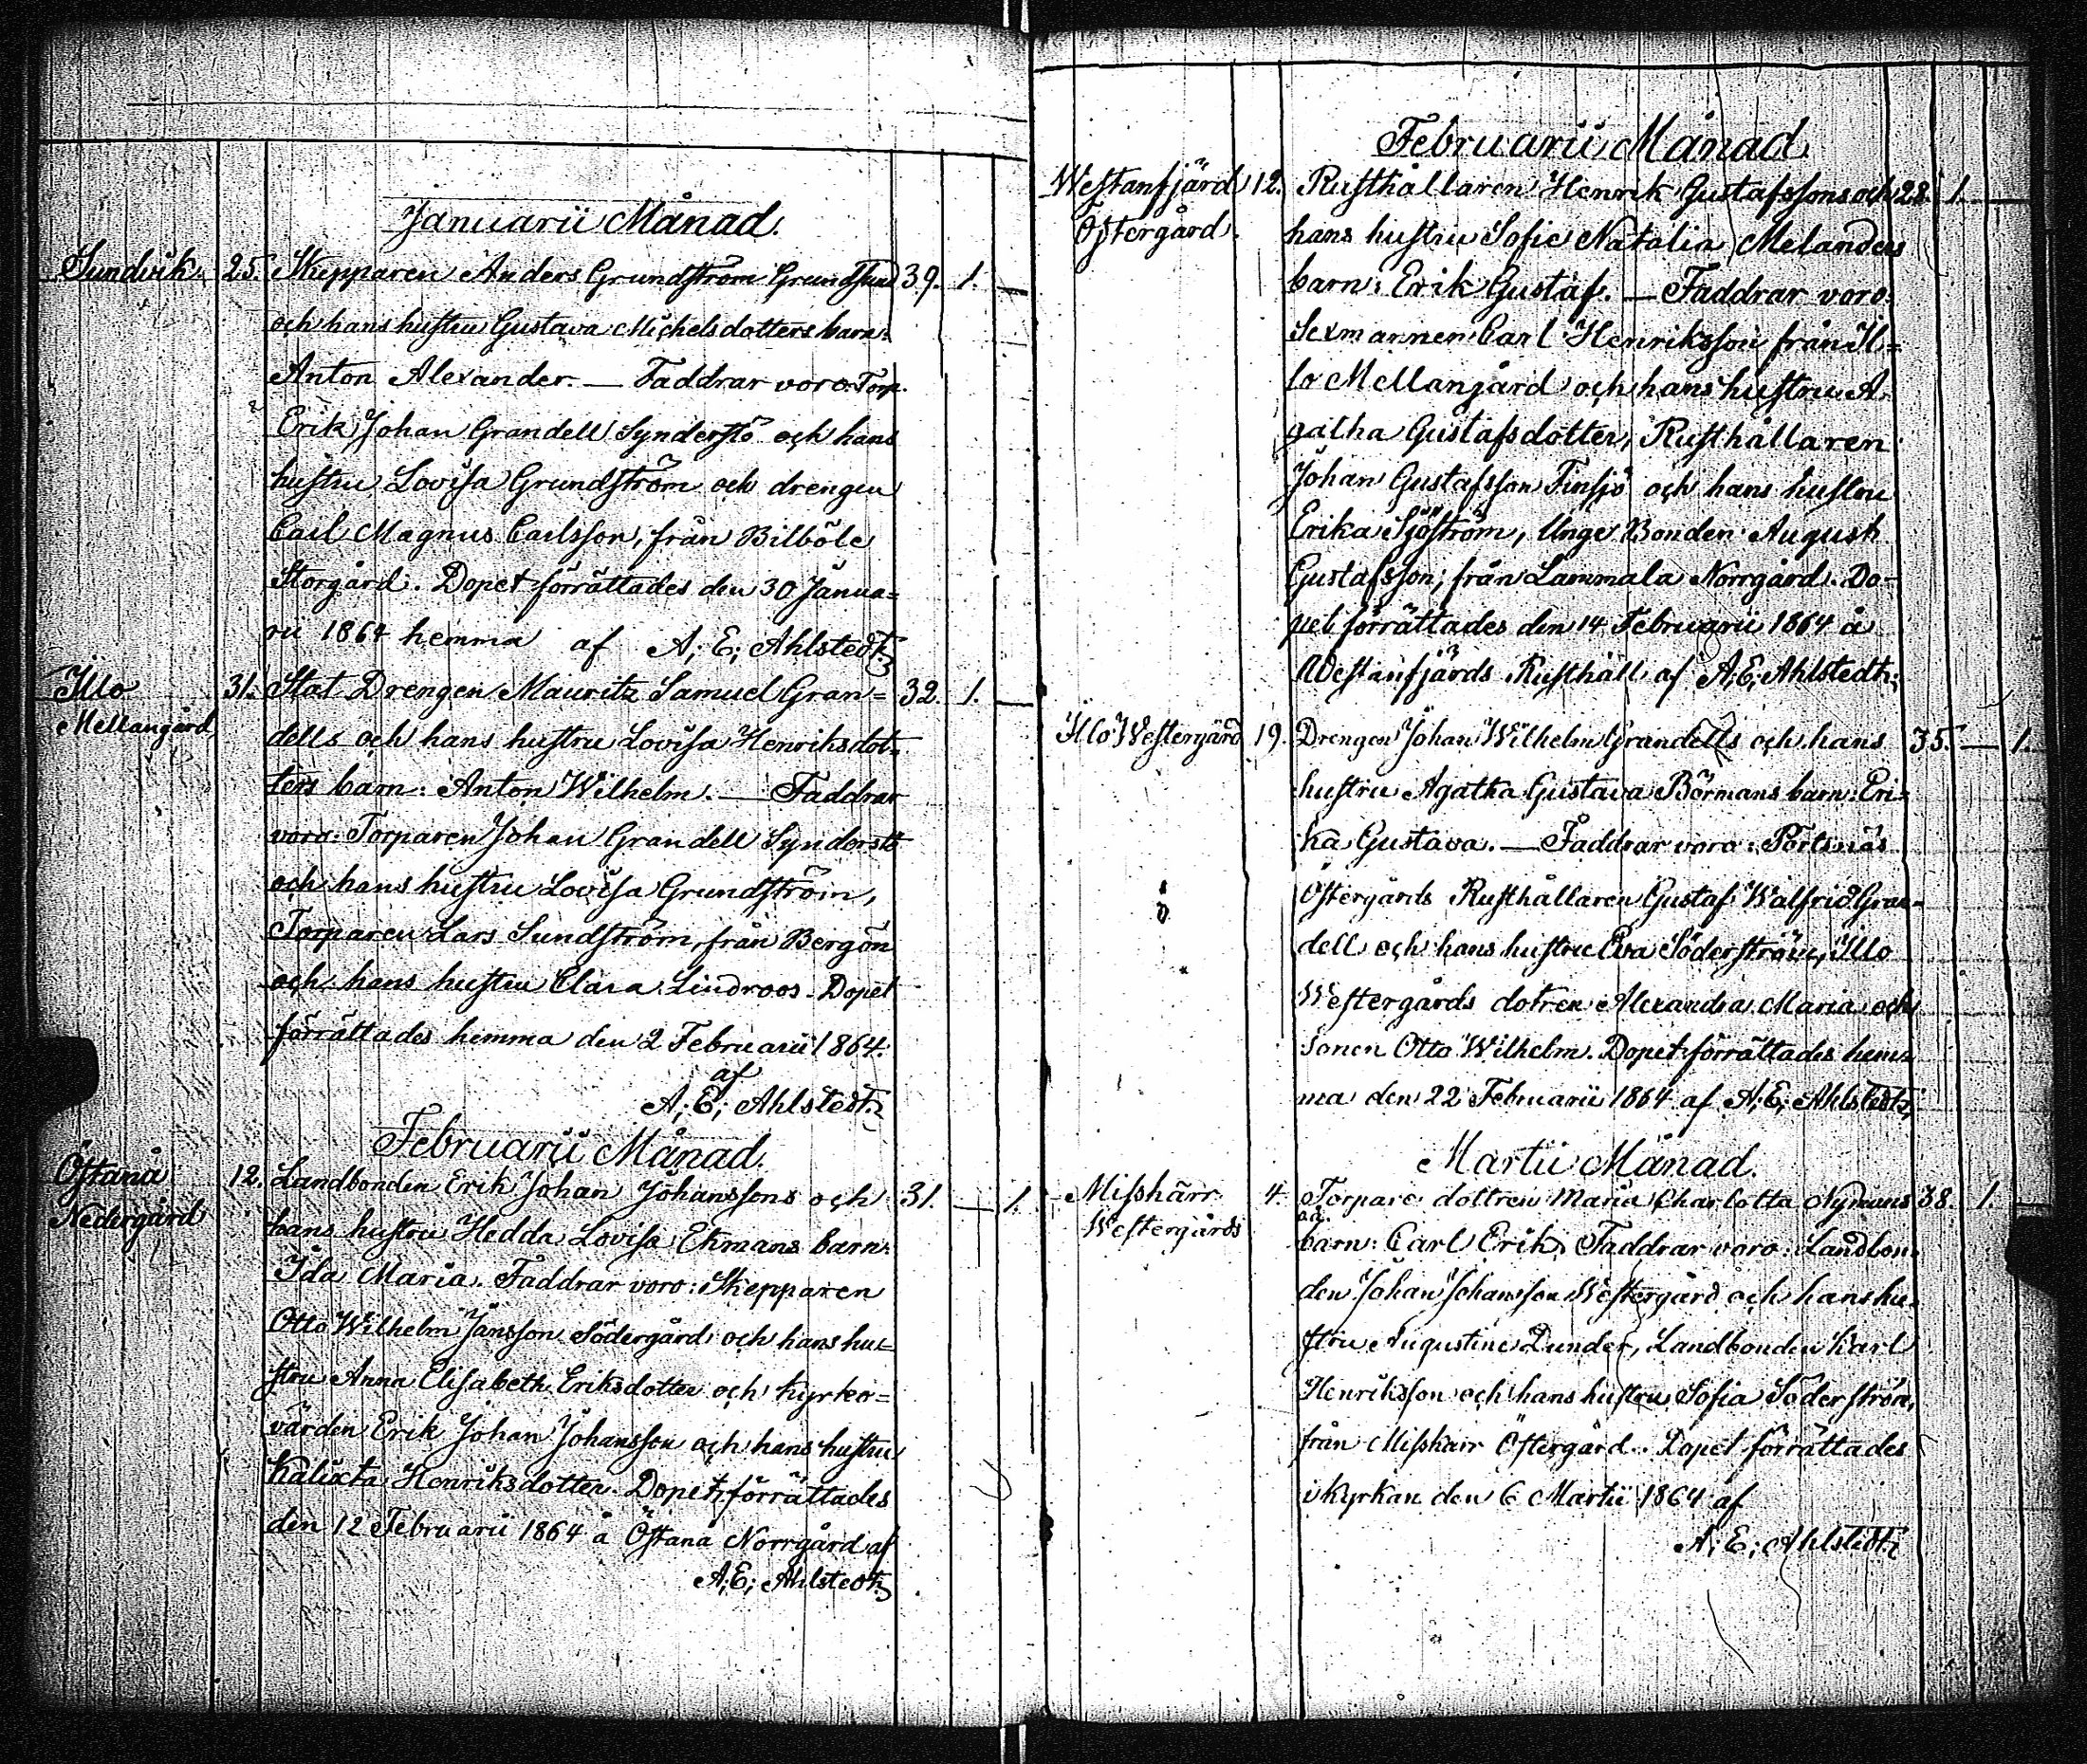 Januarii Månad.
Sundvik. 25. Skepparen Anders Grundström Grundsund 39. 1. —
och hans hustru Gustava Michelsdotters barn:
Anton Alexander. — Faddrar voro: Torp.
Erik Johan Grandell Synderstö och hans
hustru Lovisa Grundström och drengen
Carl Magnus Carlsson, från Bilböle
Storgård. Dopet förrättades den 30 Janua=
rii 1864 hemma af A; E; Ahlstedt
Illo 31. Stat Drengen Mauritz Samuel Gran= 32. 1. —
Mellangård dells och hans hustru Lovisa Henriksdot=
ters barn: Anton Wilhelm. — Faddrar
voro: Torparen Johan Grandell Synderstö
och hans hustru Lovisa Grundström,
Torparen Lars Sundström, från Bergön
och hans hustru Clara Lindroos. Dopet
förrättades hemma den 2 Februarii 1864.
af
A; E; Ahlstedt
Februarii Månad.
Östanå 12. Landbonden Erik Johan Johanssons och 31. — 1.
Nedergård hans hustru Hedda Lovisa Ekmans barn:
Ida Maria. Faddrar voro: Skepparen
Otto Wilhelm Jansson Södergård och hans hu=
stru Anna Elisabeth Eriksdotter och Kyrko=
värden Erik Johan Johansson och hans hustru
Kalixta Henriksdotter. Dopet förrättades
den 12 Februarii 1864 å Östanå Norrgård af
A; E; Ahlstedt
Februarii Månad
Westanfjärd 12. Rusthållaren Henrik Gustafssons och 28. 1. —
Östergård. hans hustru Sofie Natalia Melanders
barn: Erik Gustaf. — Faddrar voro:
Sexmannen Carl Henriksson från Il=
lo Mellangård och hans hustru A=
gatha Gustafsdotter, Rusthållaren
Johan Gustafsson Finsjö och hans hustru
Erika Sjöström, Unge Bonden August
Gustafsson, från Lammala Norrgård. Do=
pet förrättades den 14 Februarii 1864 å
Westanfjärds Rusthåll af A; E; Ahlstedt
Illo Westergård 19. Drengen Johan Wilhelm Grandells och hans 35. — 1.
hustru Agatha Gustava Börmans barn: Eri=
ka Gustava. — Faddrar voro: Pörtsnäs
Östergårds Rusthållaren Gustaf Walfrid Gran=
dell och hans hustru Eva Söderström, Illo
Westergårds dotren Alexandra Maria och
Sonen Otto Wilhelm. Dopet förrättades hem=
ma den 22 Februarii 1864 af A; E; Ahlstedt
Martii Månad.
Misskärr 4. Torpare dottren Maria Charlotta Nymans 38. 1. —
Westergårds oä. barn: Carl Erik. Faddrar voro: Landbon=
den Johan Johansson Westergård och hans hu=
stru Augustine Dunder, Landbonden Karl
Henriksson och hans hustru Sofia Söderström,
från Misskärr Östergård. Dopet förrättades
i kyrkan den 6 Martii 1864 af
A; E; Ahlstedt